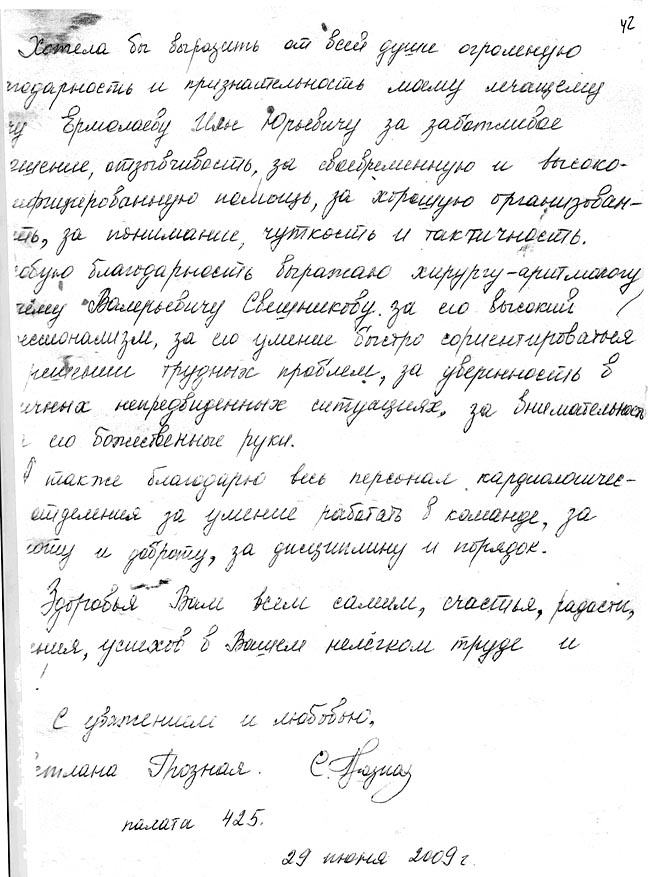 42
Хотела бы выразить от всей души огромную
годарность и признательность моему лечащему
чу Ермолаеву Илье Юрьевичу за заботливое
щение, отзывчивость, за своевременную и высоко-
ифицированную помощь, за хорошую организован-
сть, за понимание, чуткость и тактичность.
обую благодарность выражаю хирургу-аритмологу
Валерьевичу Свешникову за его высокий
ессионализм, за его умение быстро сориентироваться
решении трудных проблем, за уверенность в
ичных непредвиденных ситуациях, за внимательность
и его божественные руки.
А также благодарю весь персонал кардиологичес-
отделения за умение работать в команде, за
оту и доброту, за дисциплину и порядок.
Здоровья Вам всем самим, счастья, радости,
ения, успехов в Вашем нелёгком труде и
!
С уважением и любовью,
етлана Грозная.
палата 425.
29 июня 2009 г.